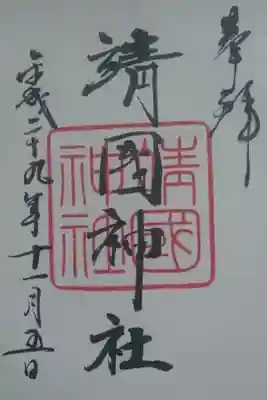 奉拝
靖國神社
平成二十九年十一月五日
靖國神社